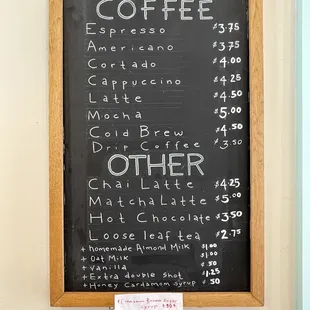 COFFEE
Espresso $3.75
Americano $3.75
Cortado $4.00
Cappuccino $4.25
Latte $4.50
Mocha $5.00
Cold Brew $4.50
Drip Coffee $3.50
OTHER
Chai Latte $4.25
Matcha Latte $5.00
Hot Chocolate $3.50
Loose leaf tea $2.75
+ homemade Almond Milk $1.00
+ Oat Milk $1.00
+ Vanilla $.50
+ Extra double shot $1.25
+ Honey Cardamom syrup $.50
syrup